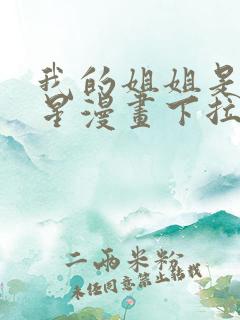 我的姐姐是
星漫畫下拉
二兩米粉
未经同意禁止转载